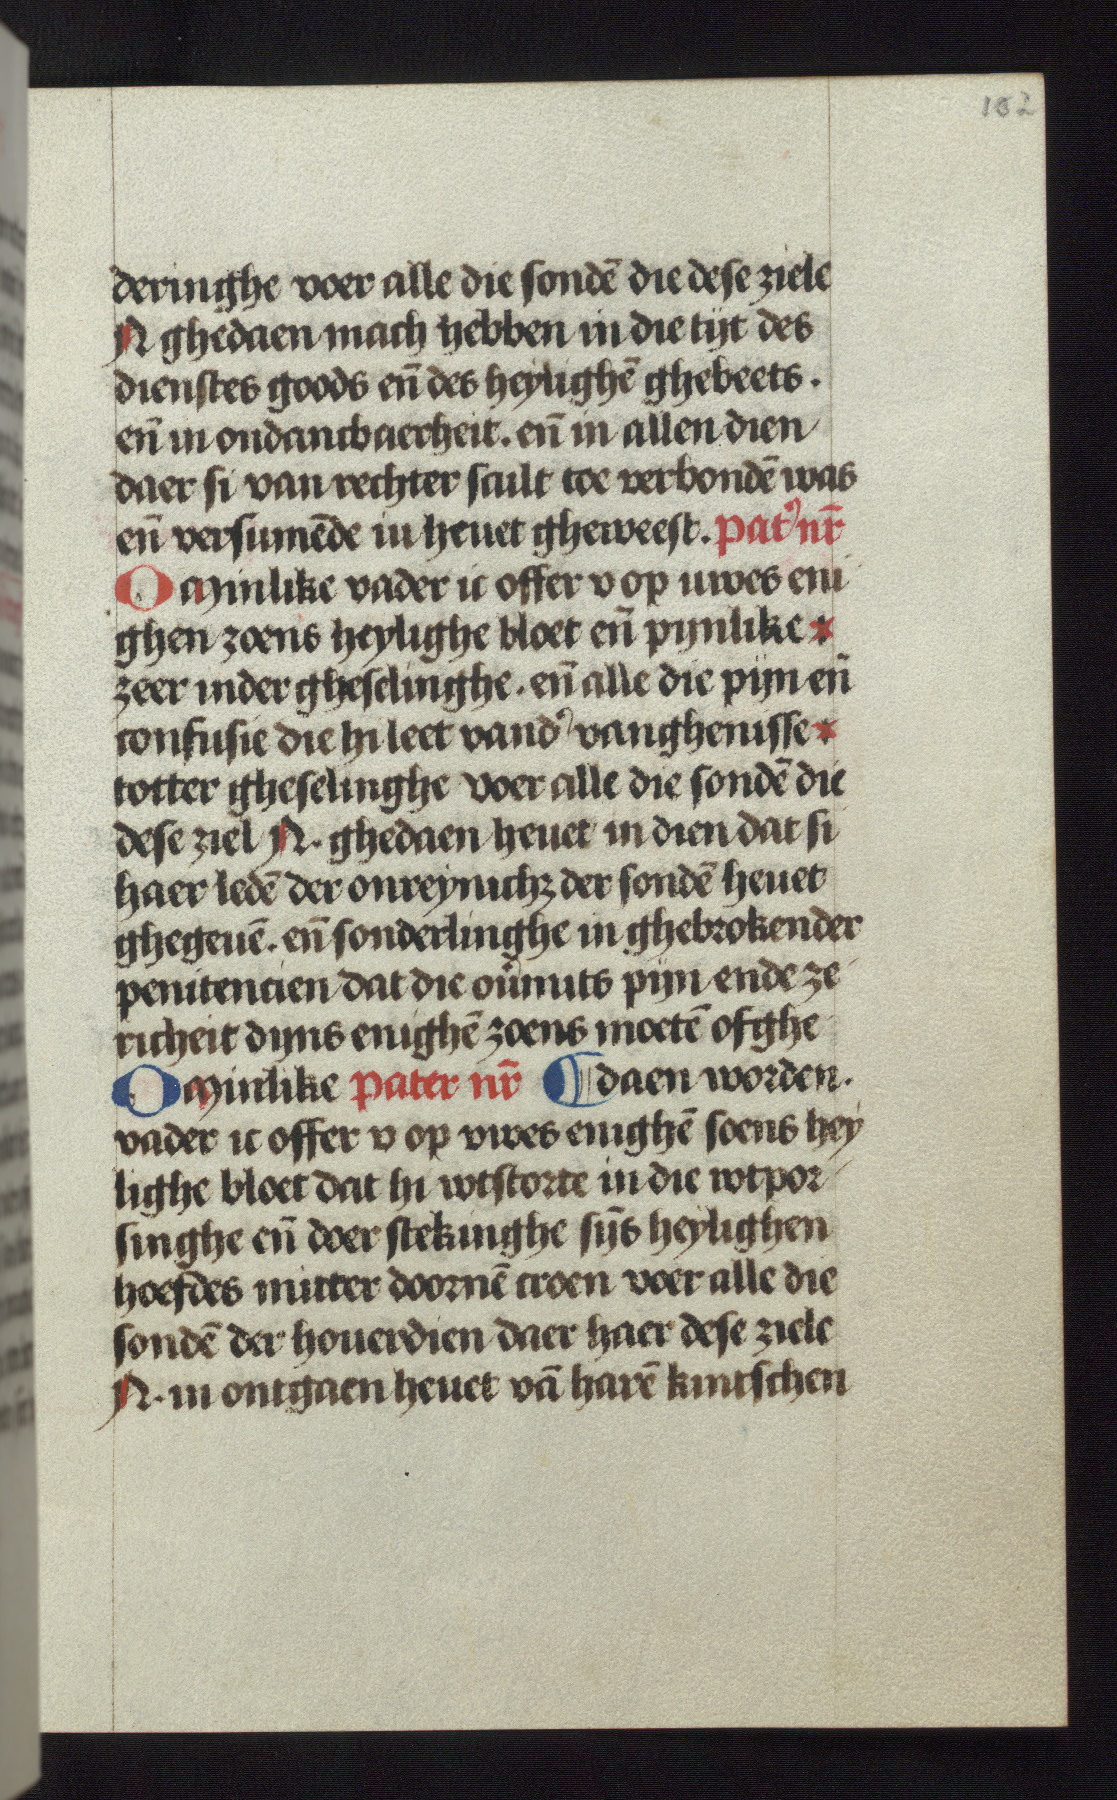 162
deringhe voer alle die sondē die dese ziele
N ghedaen mach hebben in die tijt des
dienstes goods en̄ des heylighē ghebeets.
en̄ in ondancbaerheit. en̄ in allen dien
daer si van rechter scult toe verbondē was
en̄ versumēde in heuet gheweest. pat᾽ nr̄
O Minlike vader ic offer v op uwes eni
ghen zoens heylighe bloet en̄ pijnlike
zeer inder gheselinghe. en̄ alle die pijn en̄
confusie die hi leet vand᾽ vanghenisse
totter gheselinghe voer alle die sondē die
dese ziel N. ghedaen heuet in dien dat si
haer ledē der onreynichz der sondē heuet
ghegeuē. en̄ sonderlinghe in ghebrokender
penitencien dat die ou᾽mits pijn ende ze
richeit dijns enighē zoens moetē ofghe
O Minlike pater nr̄ ¶ daen worden.
vader ic offer v op vwes enighē soens hey
lighe bloet dat hi wtstorte in die wtpor
singhe en̄ doer stekinghe sijs̄ heylighen
hoefdes mitter doornē croen voer alle die
sondē der houerdien daer haer dese ziele
N. in ontgaen heuet vā harē kintschen